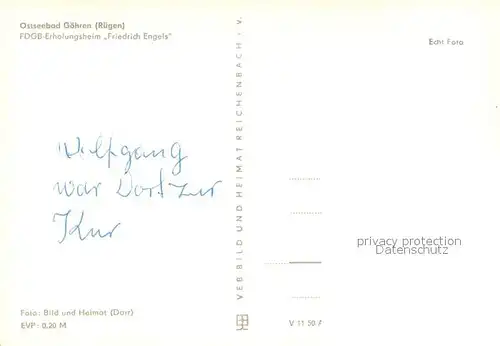 Ostseebad Göhren (Rügen)
FDGB-Erholungsheim „Friedrich Engels“
Echt Foto
Wolfgang
war Dort zur
Kur
VEB BILD UND HEIMAT REICHENBACH i. V.
privacy protection
Datenschutz
Foto: Bild und Heimat (Darr)
EVP: 0,20 M
V 11 50